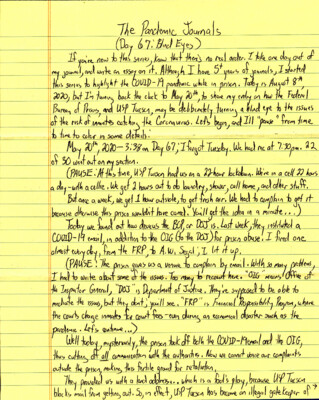 The Pandemic Journals
(Day 67: Blind Eyes)
If you're new to this series, know that there's no real order. I take one day out of
my journal, and write an essay on it. Although I have 5+ years of journals, I started
this series to highlight the COVID-19 pandemic while in prison. Today is August 8th
2020, but I'm turning back the clock to May 20th, to share my entry in how the Federal
Bureau of Prisons, and USP Tucson, may be deliberately turning a blind eye to the issues
at the risk of inmates catching the Coronavirus. Let's begin, and I'll "pause" from time
to time to color in some details:
May 20th, 2020 - 3:38am Day 67, Tuesday. We had rec at 7:30pm. 22
of 50 went out on my section.
(PAUSE: At this time, USP Tucson had us on a 22-hour lockdown. We're in a cell 22 hours
a day - with a cellie. We get 2 hours out to do laundry, shower, call home, and other stuff.
But once a week, we get 1 hour outside, to get fresh air. We had to complain to get it
because otherwise this prison wouldn't have cared. You'll get the idea in a minute...)
Today we found out how devious the BOP or DOJ is. Last week, they instituted a
COVID-19 email, in addition to the OIG (to the DOJ) for prison abuse. I fired one
almost every day, from the FRP, to A.W. I lit it up.
(PAUSE: The prison gives us a means to complain by email. With so many problems,
I had to write about some of the issues. Too many to recount here. "OIG" means Office of
the Inspector General, "DOJ" is Department of Justice. They're supposed to be able to
include the issues, but they don't, you'll see. "FRP" is Financial Responsibility Program, where
the courts charge inmates for court fees - even during an economical disaster such as the
pandemic. Let's continue...)
Well today, mysteriously, the prison took off both the COVID-19 email and the OIG,
thus cutting off all communication with the authorities. Now we cannot voice our complaints
outside the prison, making this fertile ground for retaliation.
They provided us with a local address... which is a fool's play, because USP Tucson
blocks mail from getting out. So, in effect, USP Tucson has become an illegal gatekeeper of